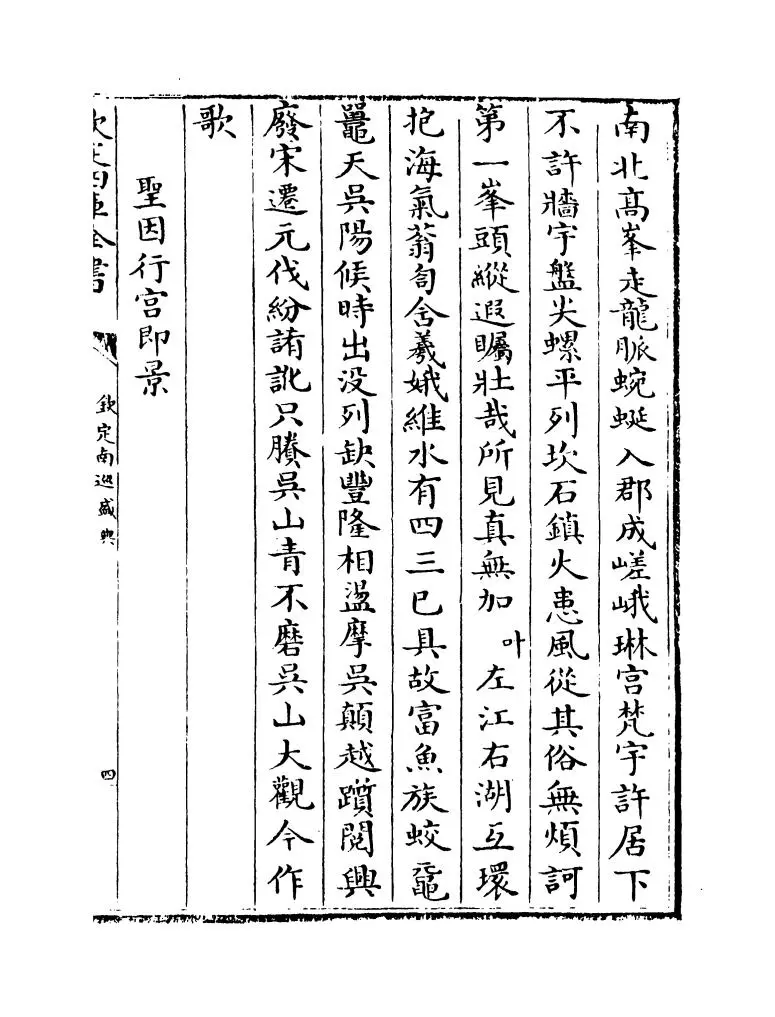 南北高峯走龍脈蜿蜒入郡成嵯峨琳宫梵宇許居下
不許牆宇盤尖螺平列坎石鎮火患風從其俗無煩訶
第一峯頭縱遐矚壯哉所見真無加叶左江右湖互環
抱海氣蓊匌含羲娥維水有四三已具故富魚族蛟鼉
鼍天吳陽候時出没列缺豐隆相盪摩吳顛越躓閱興
廢宋遷元伐紛誗訛只賸吳山青不磨吳山大觀今作
歌
聖因行宫即景
欽定四庫全書
欽定南巡盛典
四